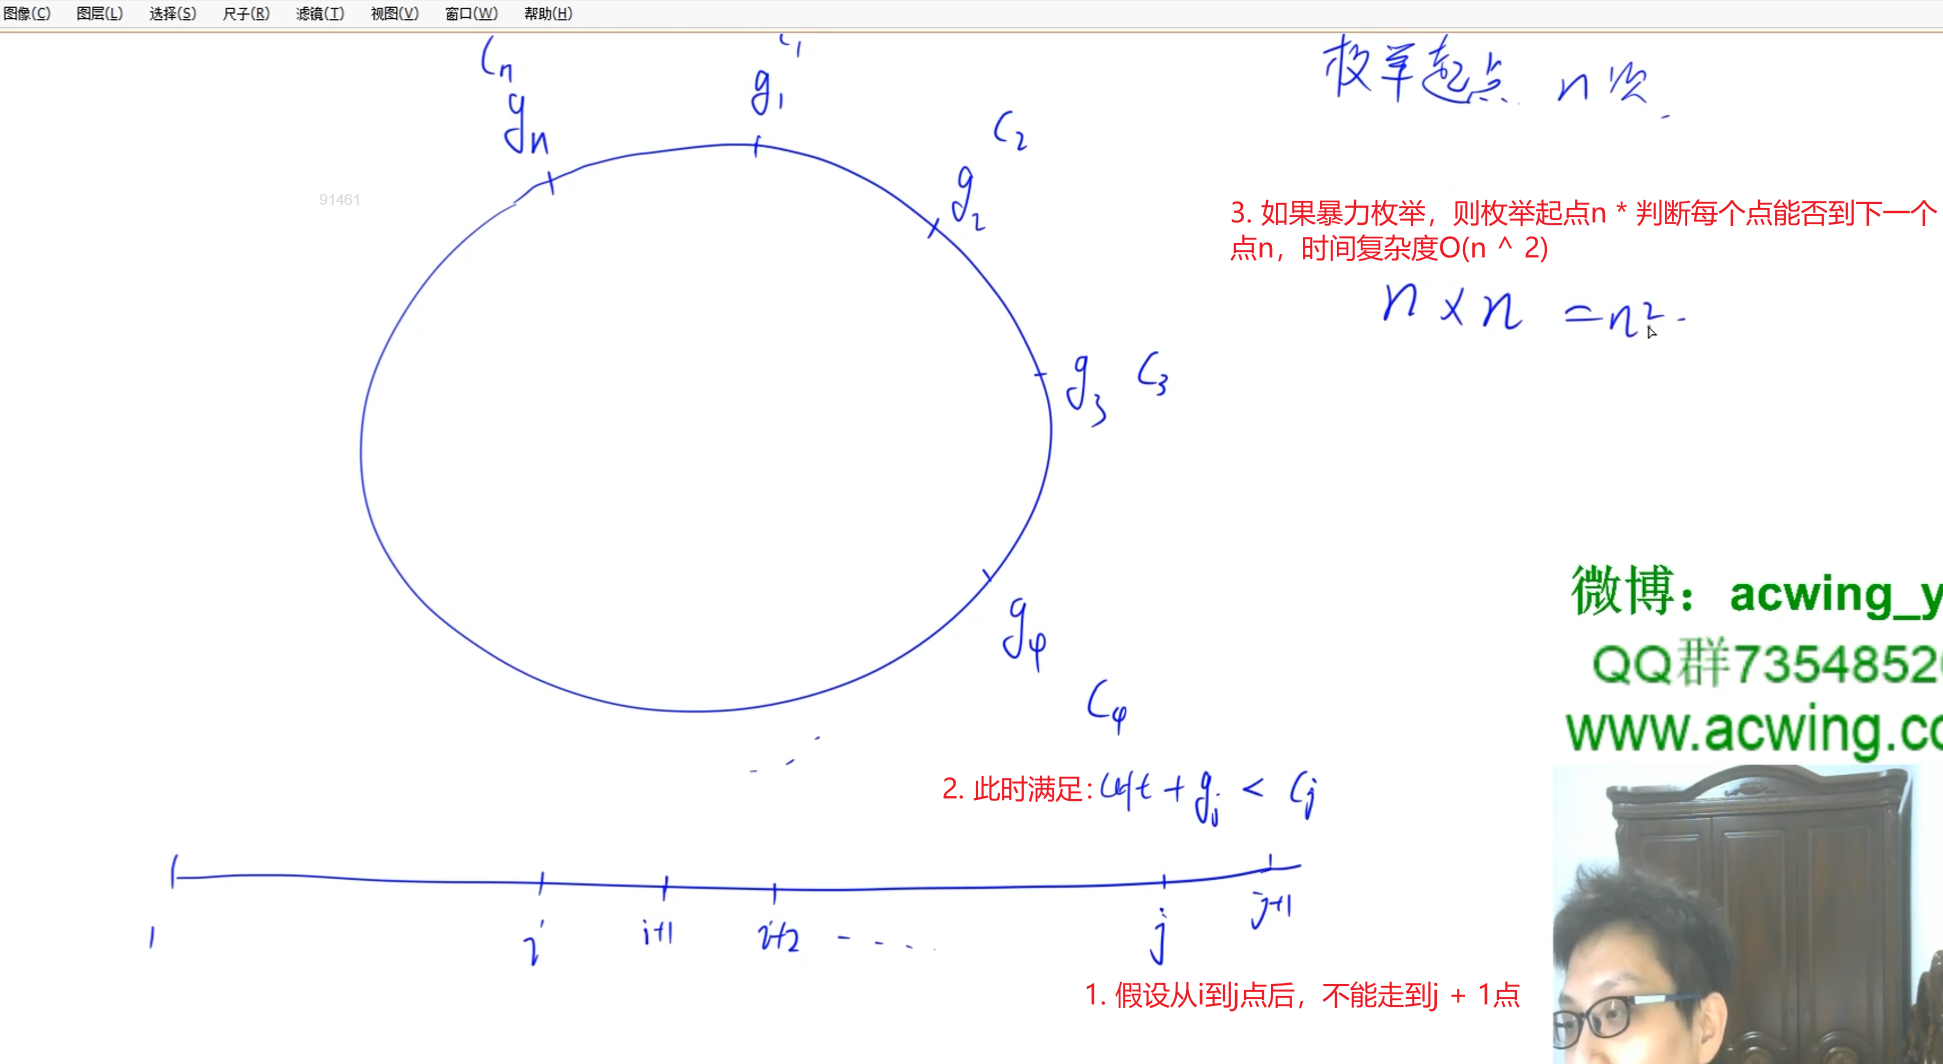 图像(C) 图层(L) 选择(S) 尺子(R) 滤镜(T) 视图(V) 窗口(W) 帮助(H)
Cn
gn
C1
g1
C2
g2
枚举起点 n 次
91461
3. 如果暴力枚举，则枚举起点n * 判断每个点能否到下一个
点n，时间复杂度O(n ^ 2)
n × n = n²
g3 C3
g4
C4
微博：acwing_y
QQ群7354852
www.acwing.c
2. 此时满足: left + gj < Cj
1 i i+1 i+2 ---- j j+1
1. 假设从i到j点后，不能走到j + 1点